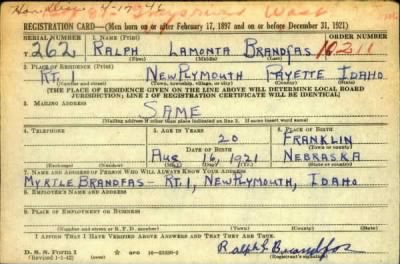 REGISTRATION CARD—(Men born on or after February 17, 1897 and on or before December 31, 1921)
SERIAL NUMBER 1. NAME (Print) ORDER NUMBER
T 262 RALPH LAMONTA BRANDFAS 10211
(First) (Middle) (Last)
2. PLACE OF RESIDENCE (Print)
RT. 1 NEW PLYMOUTH PAYETTE IDAHO
(Number and street) (Town, township, village, or city) (County) (State)
(THE PLACE OF RESIDENCE GIVEN ON THE LINE ABOVE WILL DETERMINE LOCAL BOARD
JURISDICTION; LINE 2 OF REGISTRATION CERTIFICATE WILL BE IDENTICAL)
3. MAILING ADDRESS
SAME
(Mailing address if other than place indicated on line 2. If same insert word same)
4. TELEPHONE 5. AGE IN YEARS 6. PLACE OF BIRTH
20 FRANKLIN
DATE OF BIRTH (Town or county)
AUG 16, 1921 NEBRASKA
(Exchange) (Number) (Mo.) (Day) (Yr.) (State or country)
7. NAME AND ADDRESS OF PERSON WHO WILL ALWAYS KNOW YOUR ADDRESS
MYRTLE BRANDFAS - RT. 1, NEW PLYMOUTH, IDAHO
8. EMPLOYER'S NAME AND ADDRESS
9. PLACE OF EMPLOYMENT OR BUSINESS
(Number and street or R. F. D. number) (Town) (County) (State)
I AFFIRM THAT I HAVE VERIFIED ABOVE ANSWERS AND THAT THEY ARE TRUE.
D. S. S. Form 1
(Revised 1-1-42) (over)
Ralph L Brandfas
(Registrant's signature)